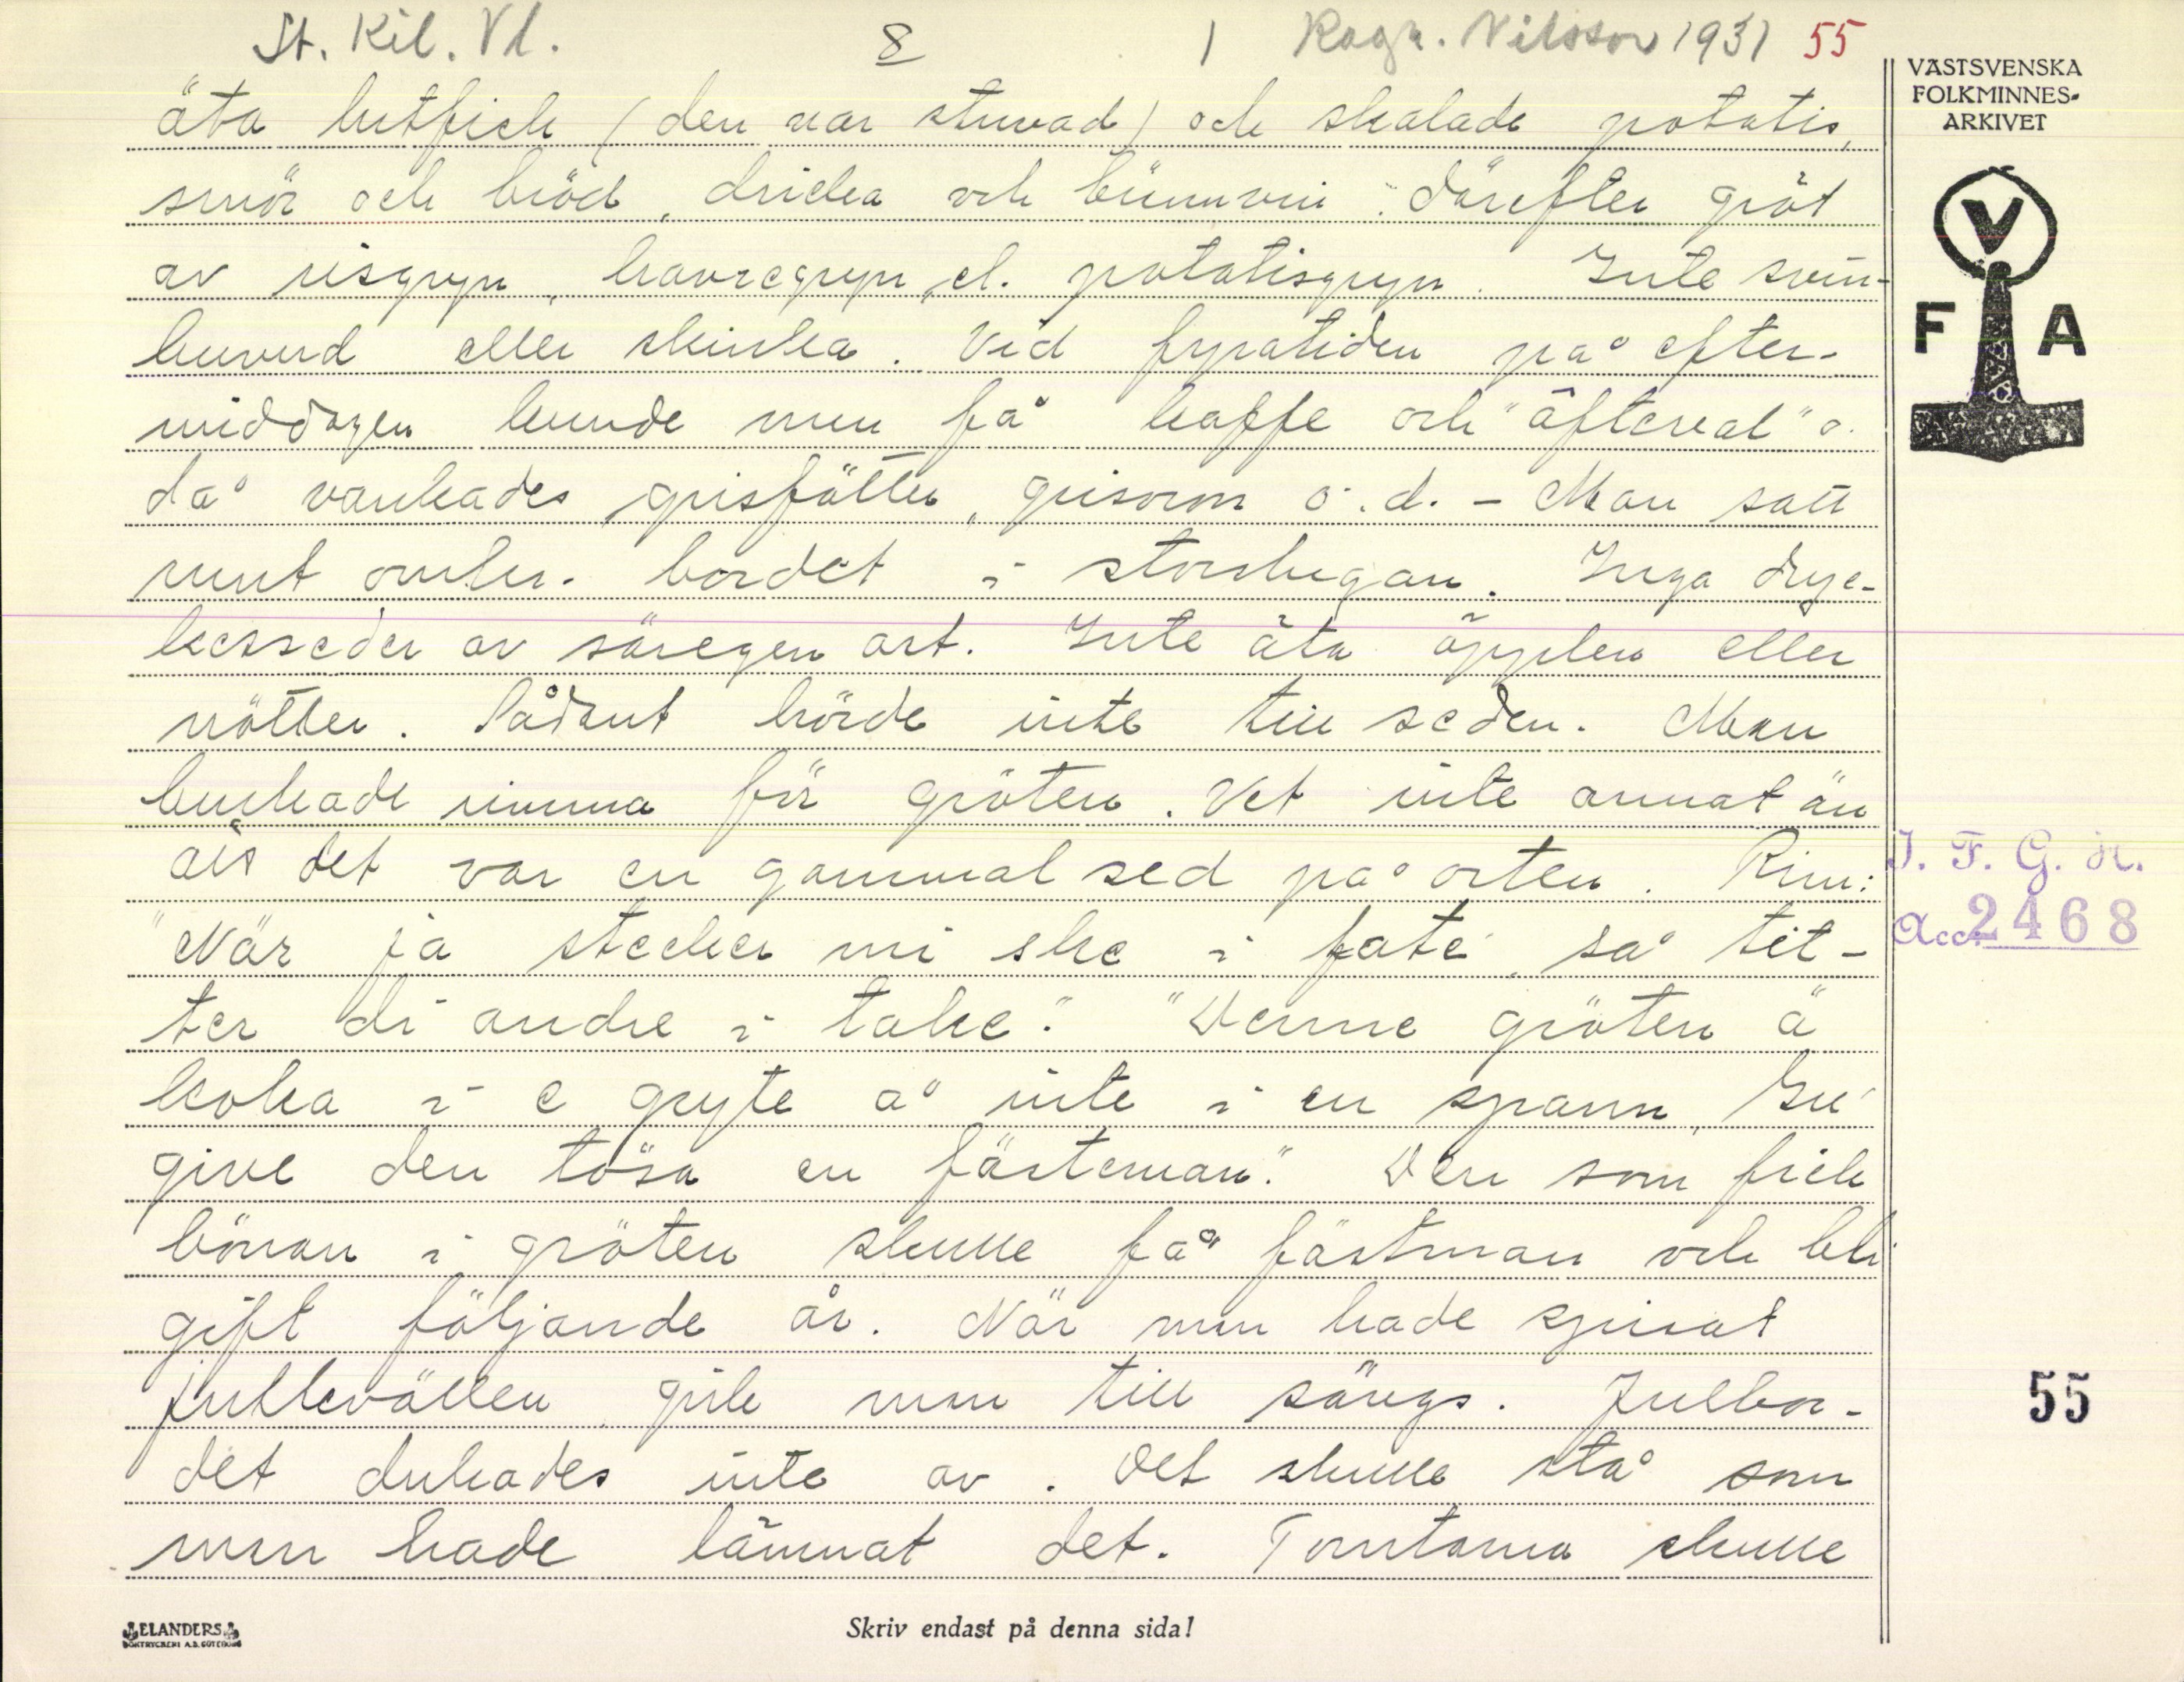 St. Kil. Vl. 8 1 Ragn. Nilsson 1931 55
VÄSTSVENSKA
FOLKMINNES-
ARKIVET
V
F A
äta lutfisk (den var stuvad) och skalade potatis,
smör och bröd, dricka och brännvin. Därefter gröt
av risgryn, havregryn, el. potatisgryn. Inte svin-
huvud eller skinka. Vid fyratiden på efter-
middagen kunde man få kaffe och "äfteval" o.
då vankades grisfötter, grisöron o.d. - Man satt
runt omkr. bordet i storstugan. Inga dryc-
kesseder av säregen art. Inte äta äpplen eller
nötter. Sådant hörde inte till seden. Man
brukade rimma för gröten. Vet inte annat än
att det var en gammal sed på orten. Rim:
"När ja stecker mi ske i fate, så tit-
ter di andre i take." "Denne gröten ä
koka i e gryte å inte i en spann, Gu
give den tösa en fästeman." Den som fick
bönan i gröten skulle få fästman och bli
gift följande år. När man hade spisat
jullevällen gick man till sängs. Julbor-
det dukades inte av. Det skulle stå som
man hade lämnat det. Tomtarna skulle
I. F. G. H.
Acc. 2468
55
ELANDERS
BOKTRYCKERI A.B. GÖTEBORG
Skriv endast på denna sida!